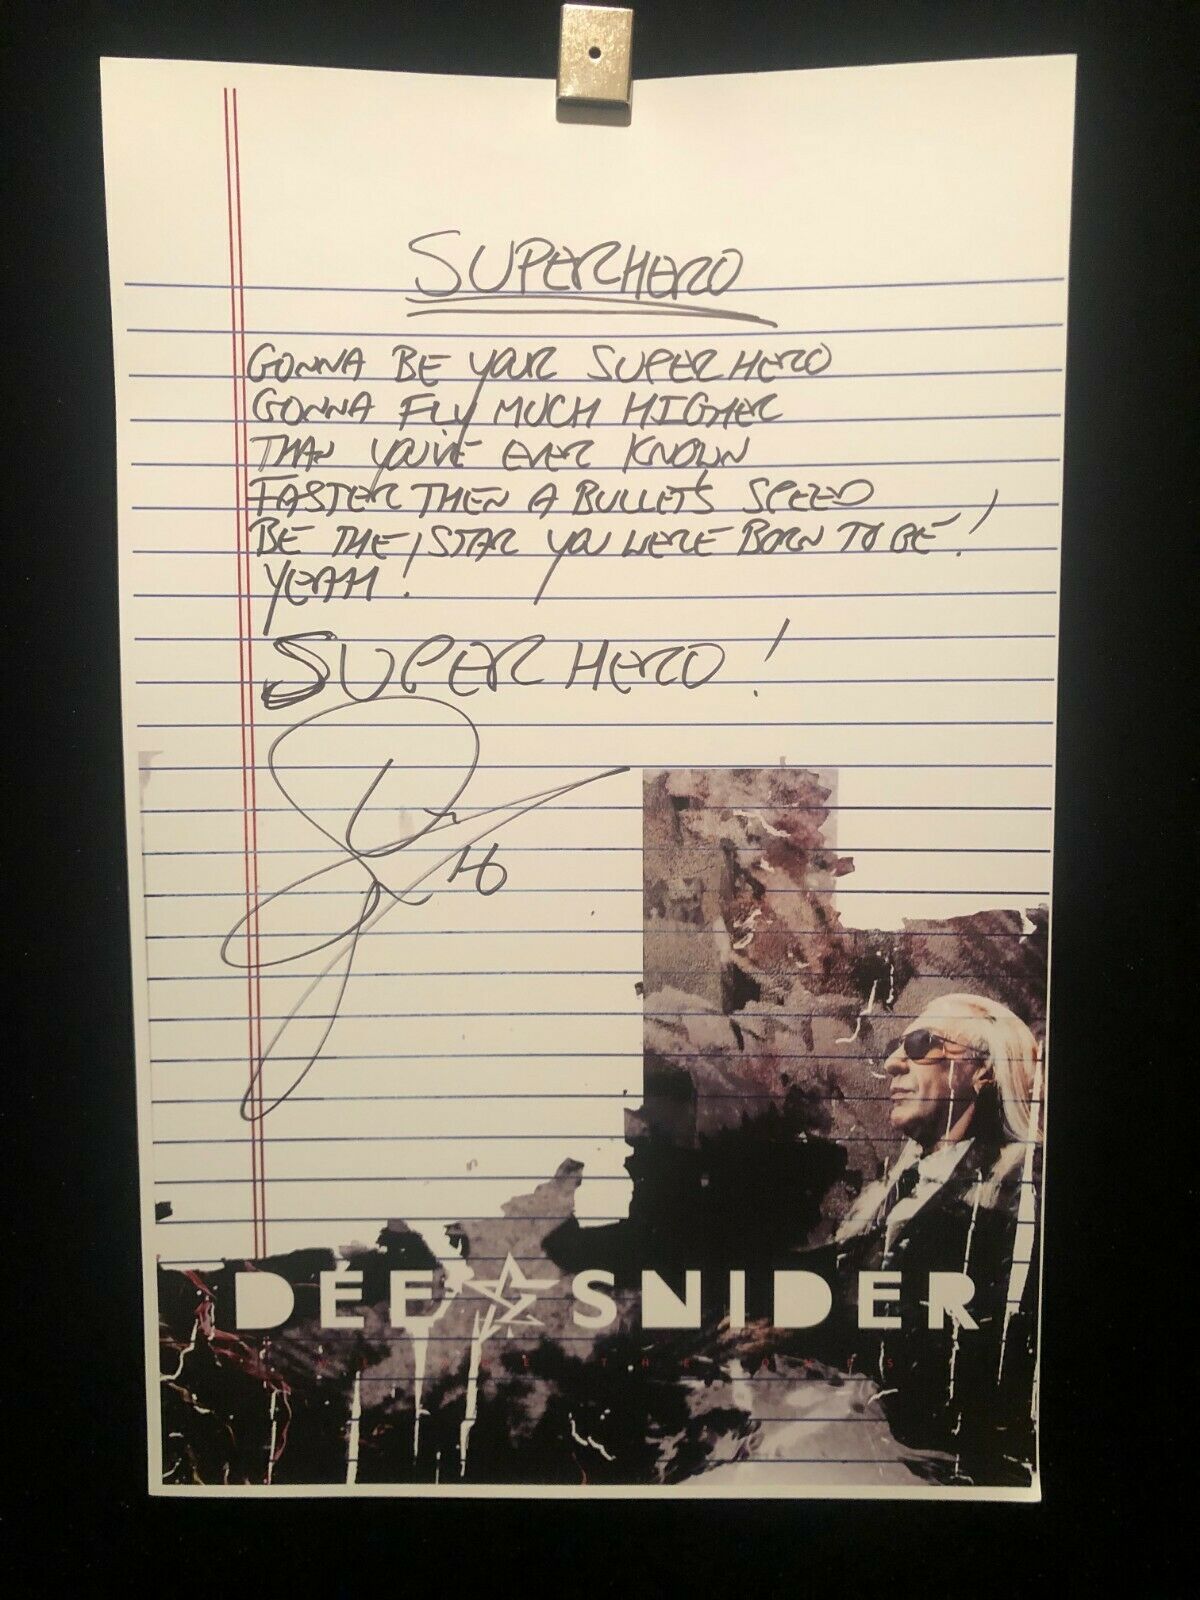 SUPERHERO
GONNA BE YOUR SUPERHERO
GONNA FLY MUCH HIGHER
THAN YOU'VE EVER KNOWN
FASTER THEN A BULLET'S SPEED
BE THE STAR YOU WERE BORN TO BE!
YEAH!
SUPERHERO!
16
DEE SNIDER
WE ARE THE ONES